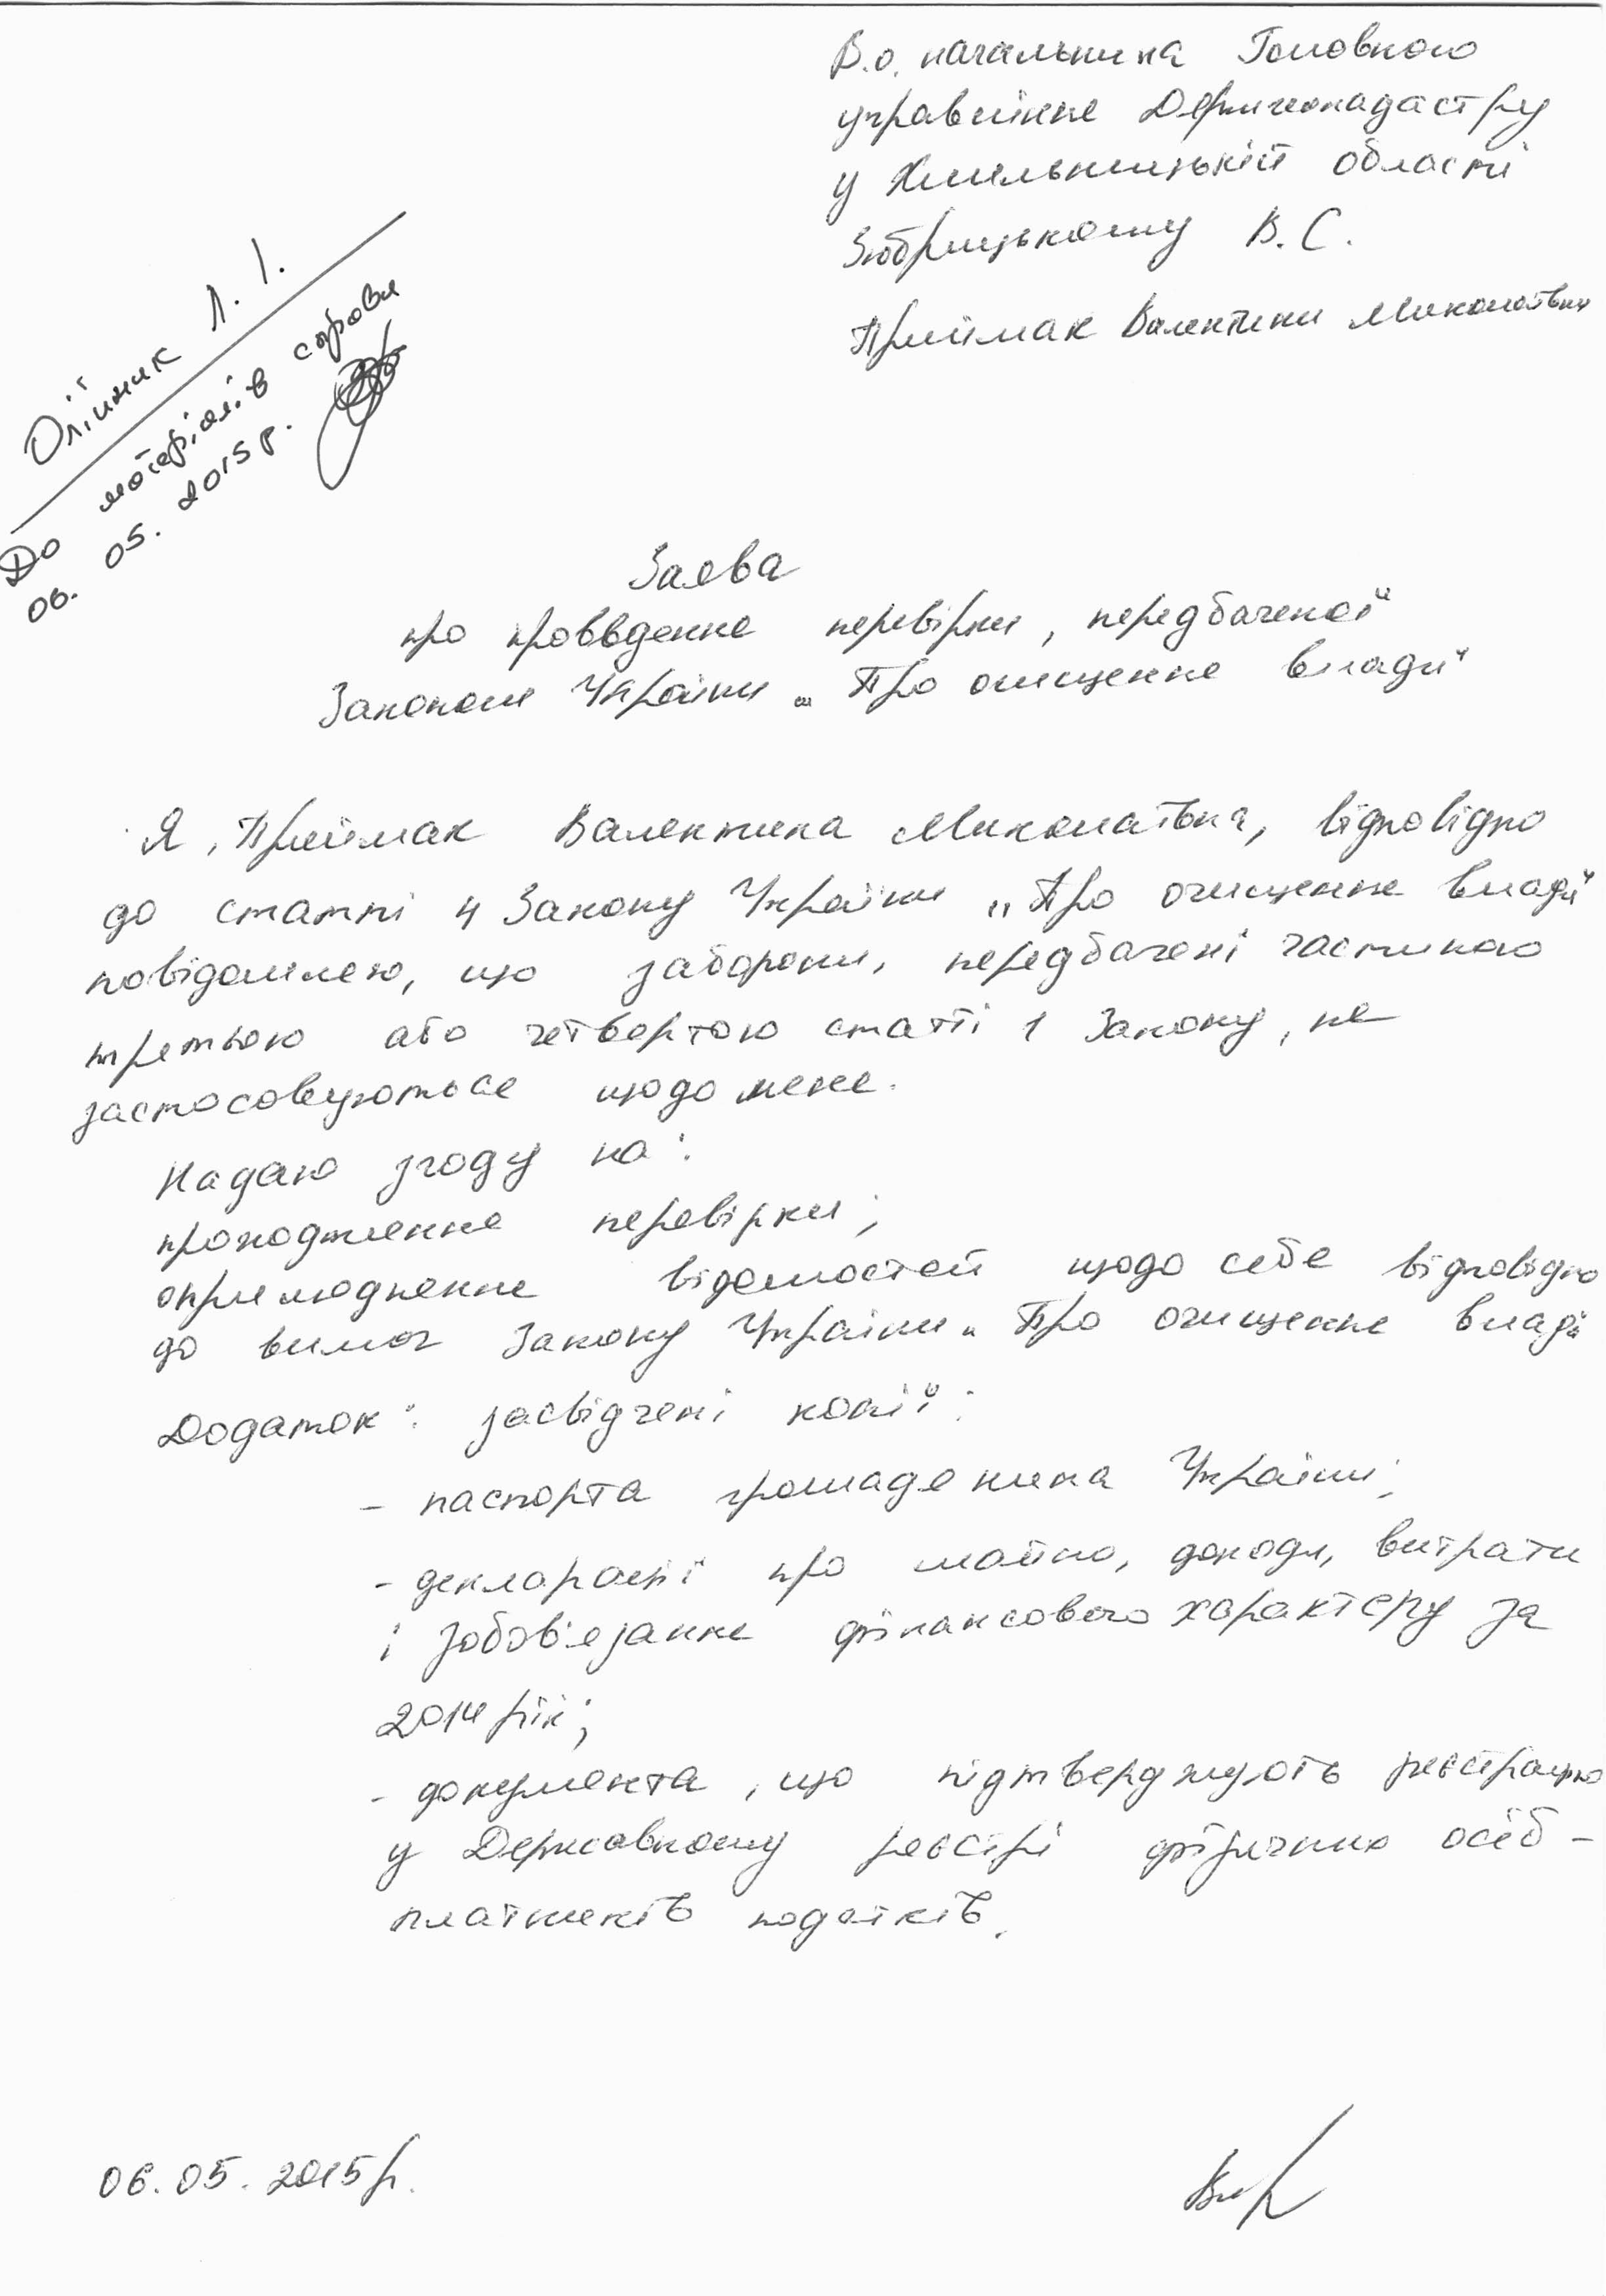 В.о. начальника Головного
управління Держгеокадастру
у Хмельницькій області
Зюбрицькому В. С.
Приймак Валентини Миколаївни
Олійник Л. І.
До матеріалів справи
06. 05. 2015 р.
Заява
про проведення перевірки, передбаченої
Законом України „Про очищення влади"
Я, Приймак Валентина Миколаївна, відповідно
до статті 4 Закону України „Про очищення влади"
повідомляю, що заборони, передбачені частиною
третьою або четвертою статті 1 Закону, не
застосовуються щодо мене.
Надаю згоду на:
проходження перевірки;
оприлюднення відомостей щодо себе відповідно
до вимог Закону України „Про очищення влади
Додаток: засвідчені копії:
- паспорта громадянина України;
- декларації про майно, доходи, витрати
і зобов'язання фінансового характеру за
2014 рік;
- документа, що підтверджують реєстрацію
у Державному реєстрі фізичних осіб -
платників податків.
06.05.2015р.